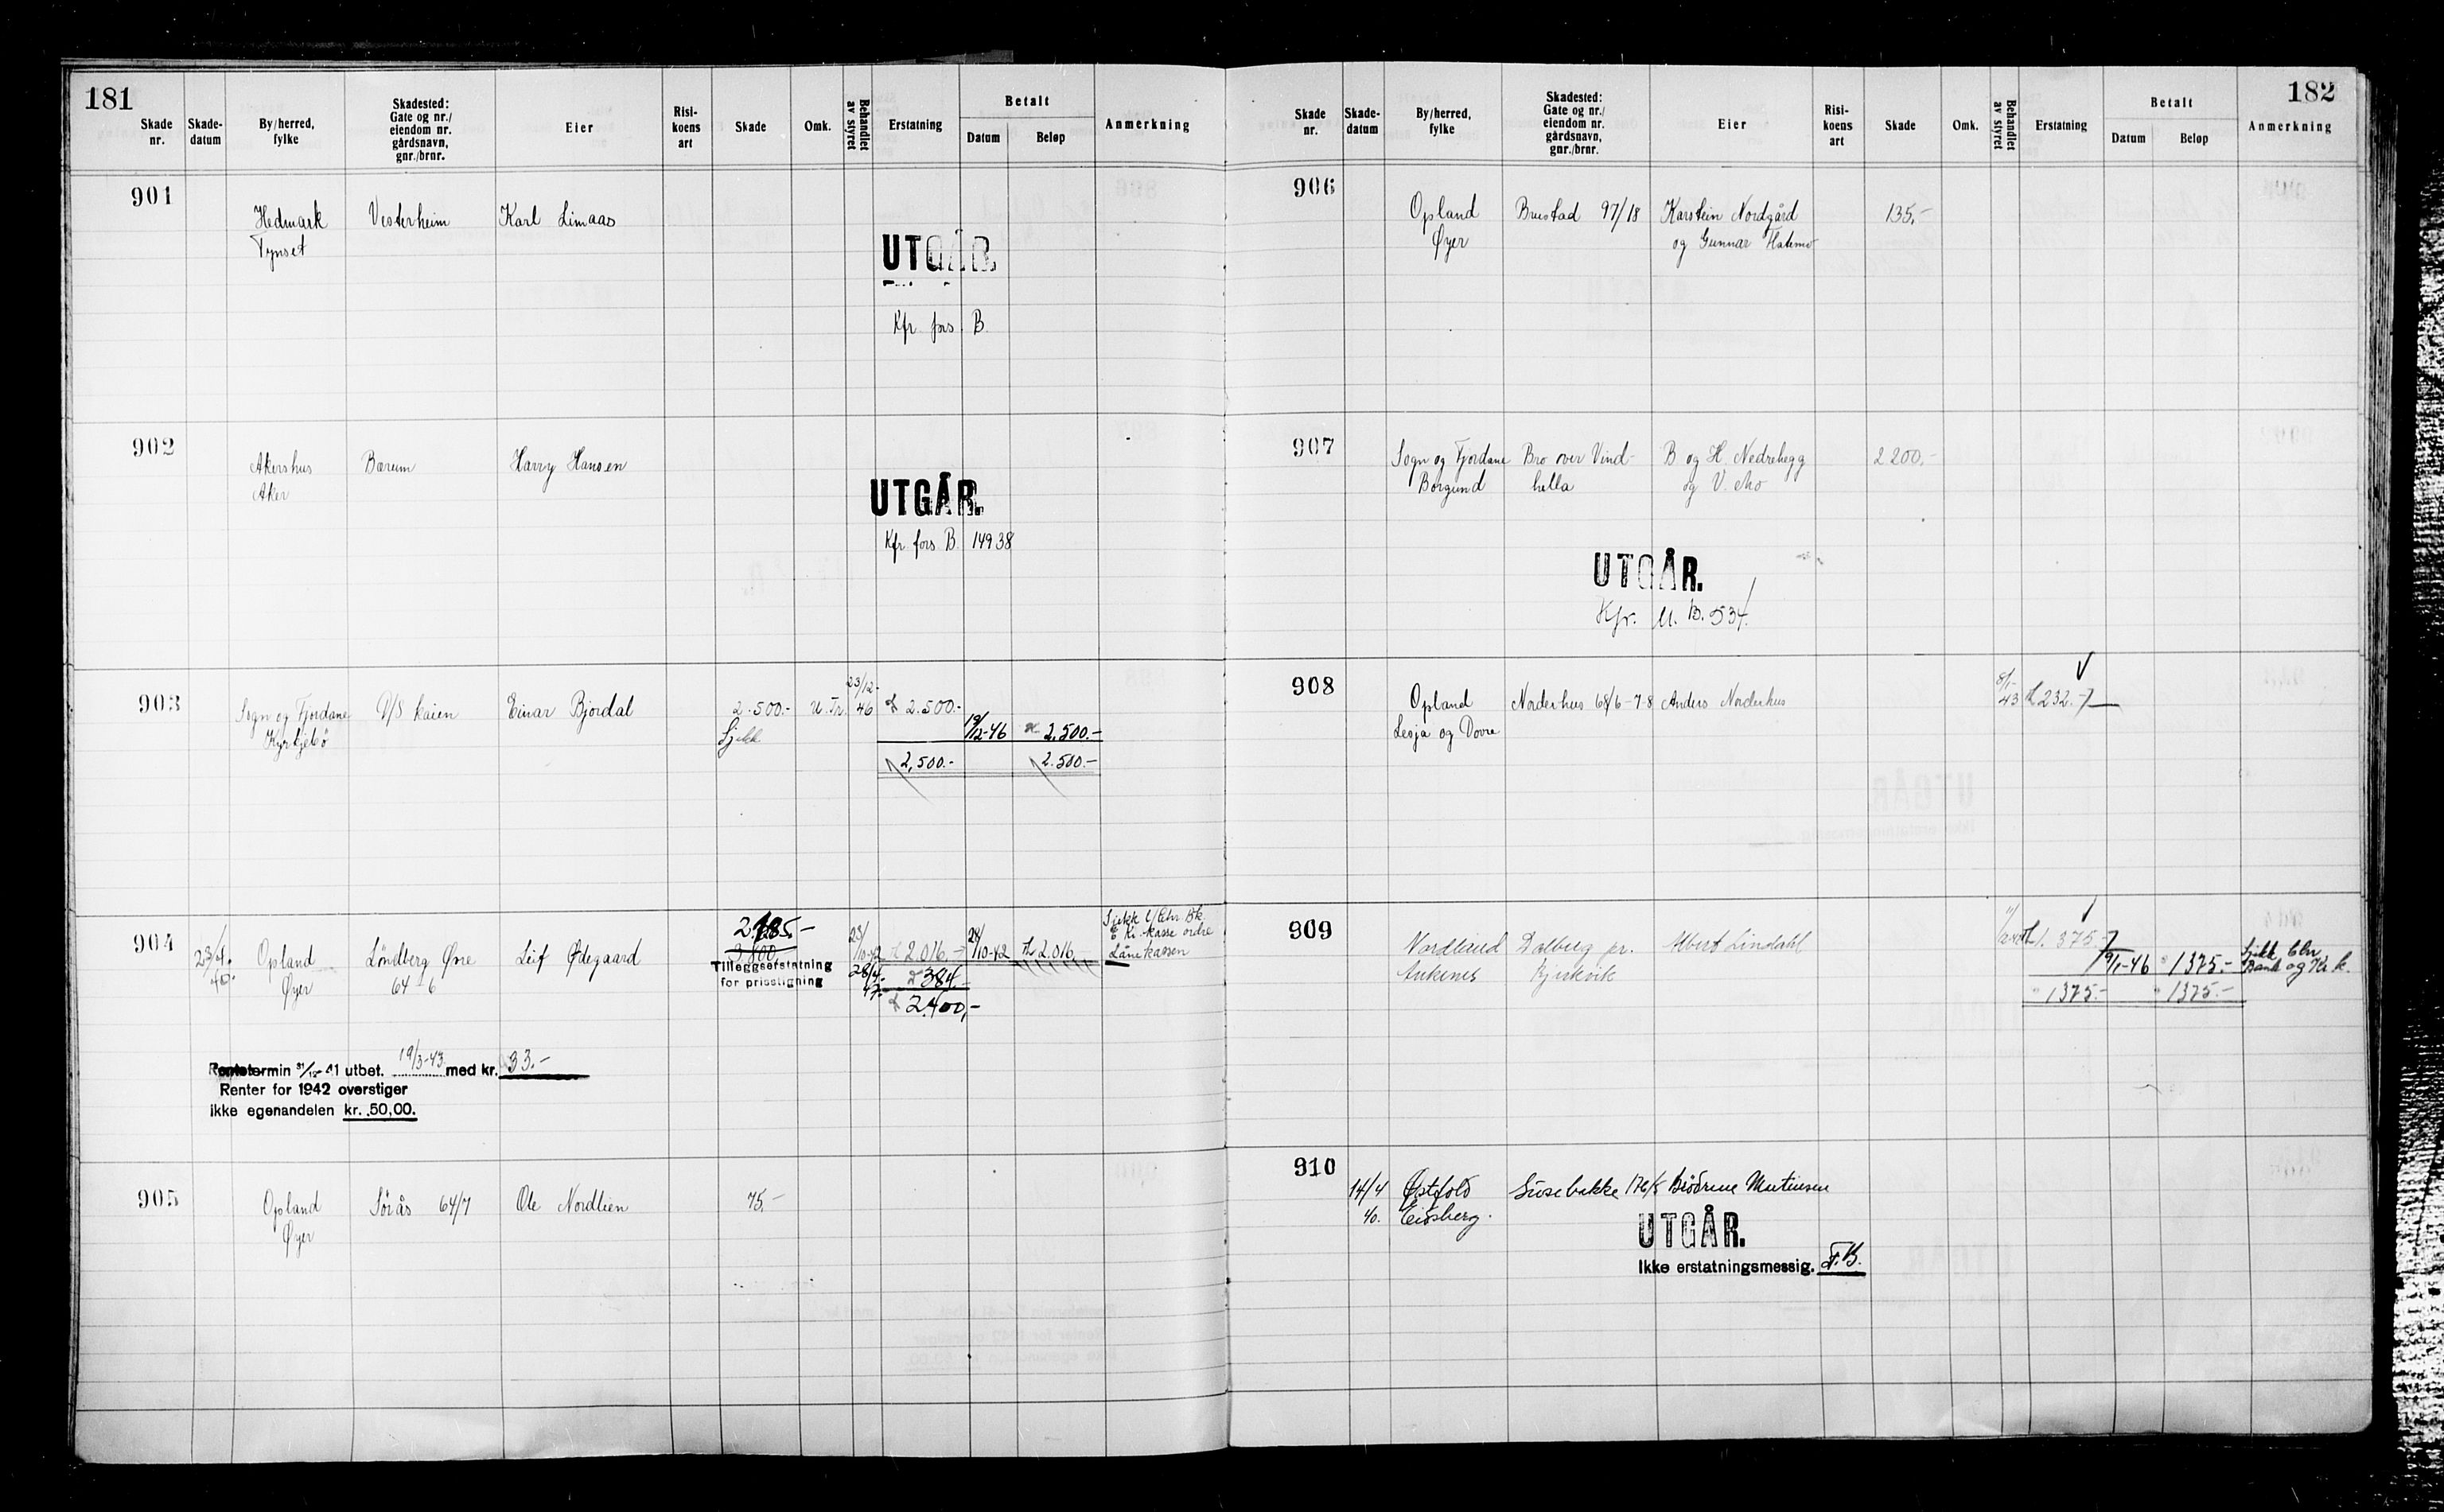 181
Skade nr.
Skade-datum
By/herred, fylke
Skadested: Gate og nr./ eiendom nr. gårdsnavn, gnr./brnr.
Eier
Risi-koens art
Skade
Omk.
Behandlet av styret
Erstatning
Betalt
Datum
Beløp
Anmerkning
901
Hedmark Vesterheim Karl Limaas
Tynset
UTGÅR.
Kfr. fors. B.
902
Akershus Bærum Harry Hansen
Aker
UTGÅR.
Kfr. fors. B. 14938
903
Sogn og Fjordane D/S kaien Einar Bjordal 2.500.- U.Tr. 23/12-46 2.500.-
Kyrkjebø Sjekk
19/12-46 2.500.-
2,500.- 2.500.-
904
23/4-40. Opland Løndberg Øvre Leif Ødegaard
Øyer 64 6
2.185.-
3.800
23/10-42 2.016.- 24/10-42 2.016.-
Tilleggserstatning for prisstigning
28/4-47. 384.-
2.400,-
Lånekassen
Rentetermin 31/12-41 utbet. 19/3-43 med kr. 33.-
Renter for 1942 overstiger
ikke egenandelen kr. 50,00.
905
Opland Sørås 64/7 Ole Nordlien 75.-
Øyer
182
Skade nr.
Skade-datum
By/herred, fylke
Skadested: Gate og nr./ eiendom nr. gårdsnavn, gnr./brnr.
Eier
Risi-koens art
Skade
Omk.
Behandlet av styret
Erstatning
Betalt
Datum
Beløp
Anmerkning
906
Opland Brustad 97/18 Karstein Nordgård 135.-
Øyer og Gunnar
907
Sogn og Fjordane Bro over Vind- B og H. Nedrehegg 2.200.-
Borgund hella og V. Mo
UTGÅR.
Kfr. U. B. 534.
908
Opland Norderhus 68/6-7-8 Anders Norderhus 8/1-43 232.-
Lesja og Dovre
909
Nordland Dalberg pr. Albert Lindahl 1.375.-
Ankenes Bjerkvik
9/1-46 1375.-
1375.- 1375.-
910
14/4 Østfold Susebakke 176/5 Brødrene Martinsen
40. Eidsberg.
UTGÅR.
Ikke erstatningsmessig. F.B.